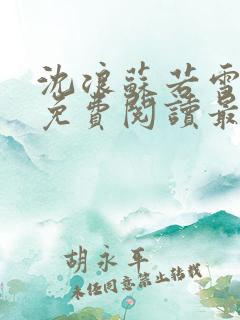 沈浪蘇若雪
免費閱讀最
胡永平
未經同意禁止轉載